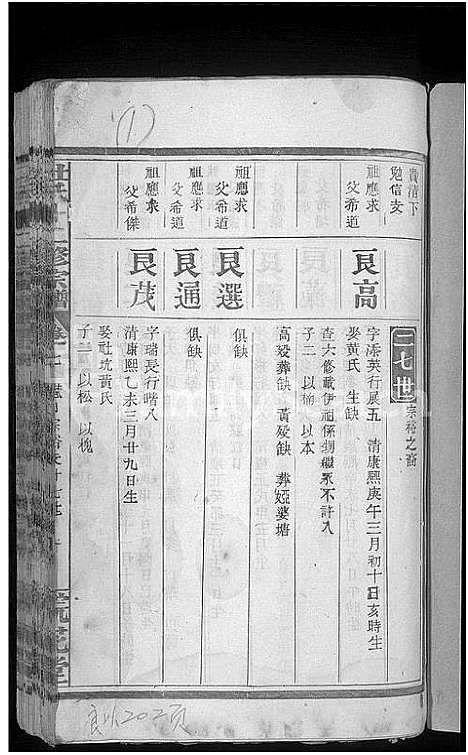 貴清下
勉信支
二七世
宗裕之裔
祖應求
父希道
良高
字添英行展五 清康熙庚午三月初十日亥時生
娶黃氏 生缺
查六修載伊祖係 繼永不許入
子二 以楠 以本
高歿葬缺 黃歿缺 葬婭婆塘
祖應求
父希道
良選
俱缺
祖應求
父希道
良通
俱缺
祖應求
父希傑
良茂
字瑞長行階八
清康熙乙未三月廿九日生
娶社坑黃氏
子二 以松 以槐
修宗譜
卷七
(1)